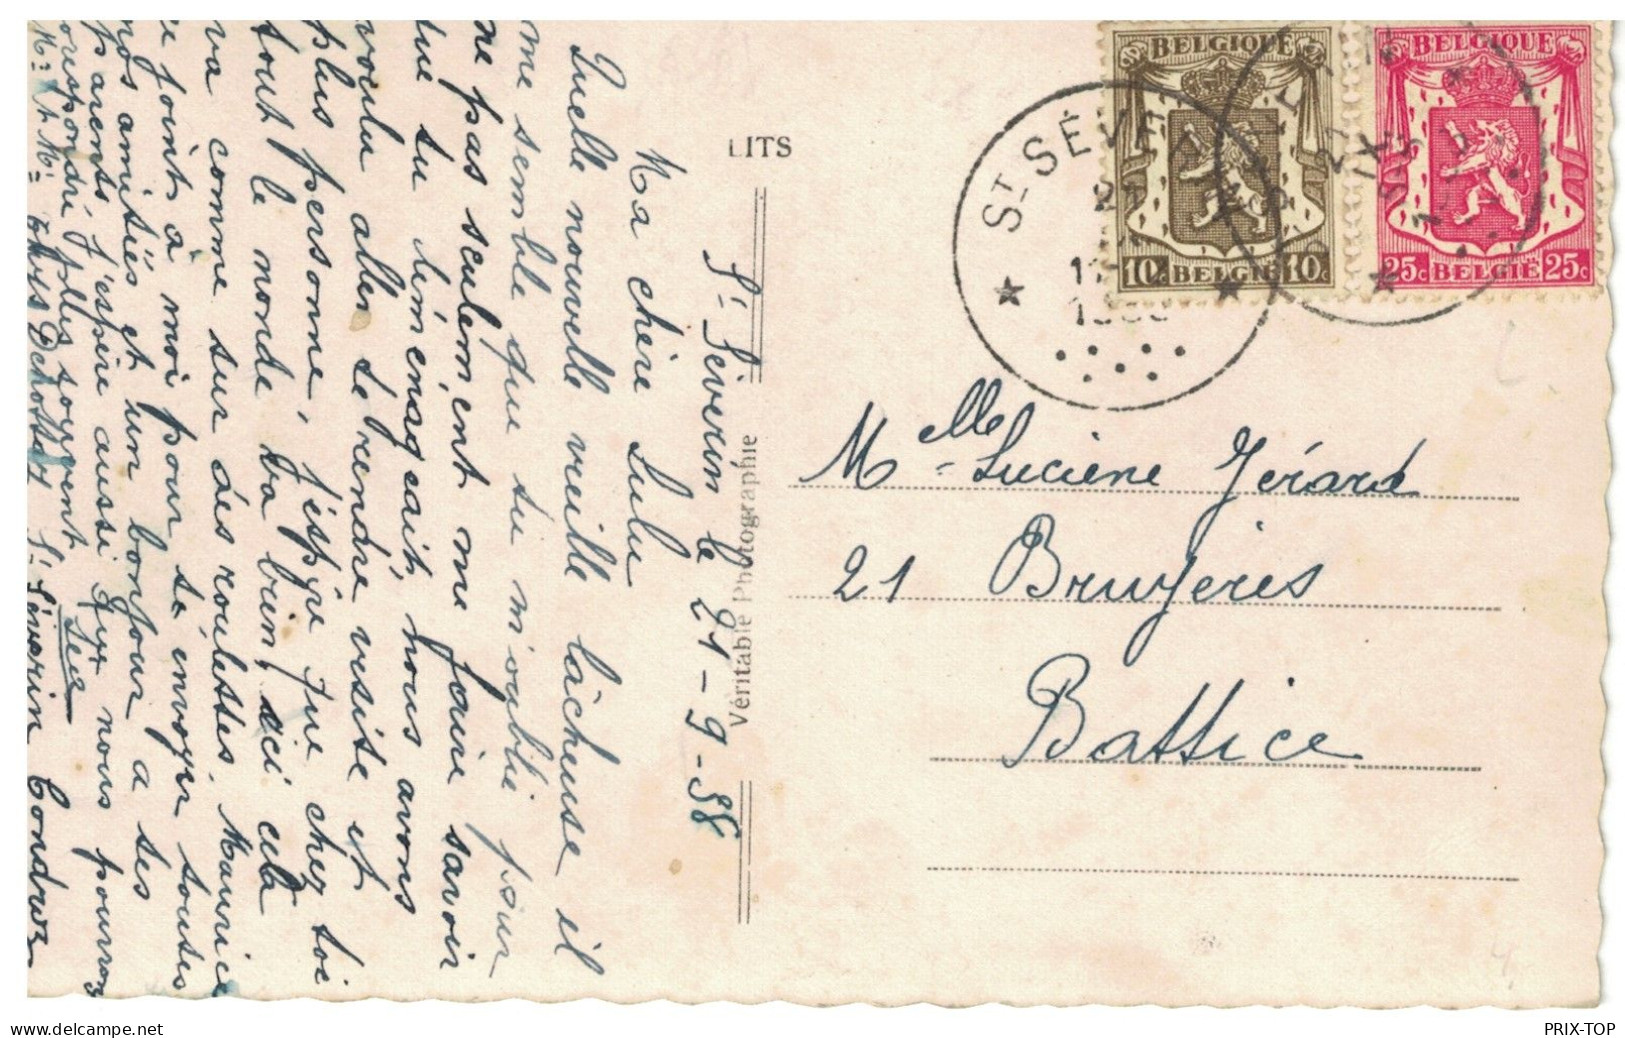 LITS
Véritable Photographie
St Séverin le 21-9-38
Ma chère Lulu
Quelle nouvelle vieille lâcheuse il
me semble que tu m'oublie pour
ne pas seulement me faire savoir
que tu déménageait, nous avons
voulu aller te rendre visite et
plus personne, j'espère que chez toi
tout le monde va bien, ici cela
va comme sur des roulettes. Maurice
se joint à moi pour t'envoyer toutes
nos amitiés et un bonjour a tes
parents j'espère aussi que nous pourrons
correspondre plus souvent
Mr et Me Thys Dehottay St Séverin Condroz
BELGIQUE
10c BELGIË 10c
BELGIQUE
25c BELGIË 25c
ST SÉVE
21
Melle Luciène Gérard
21 Bruyères
Battice
PRIX-TOP